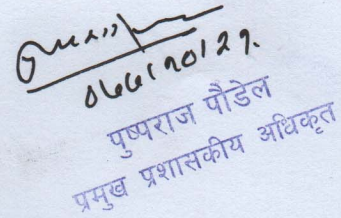 ०६६।१०।२९.
पुष्पराज पौडेल
प्रमुख प्रशासकीय अधिकृत